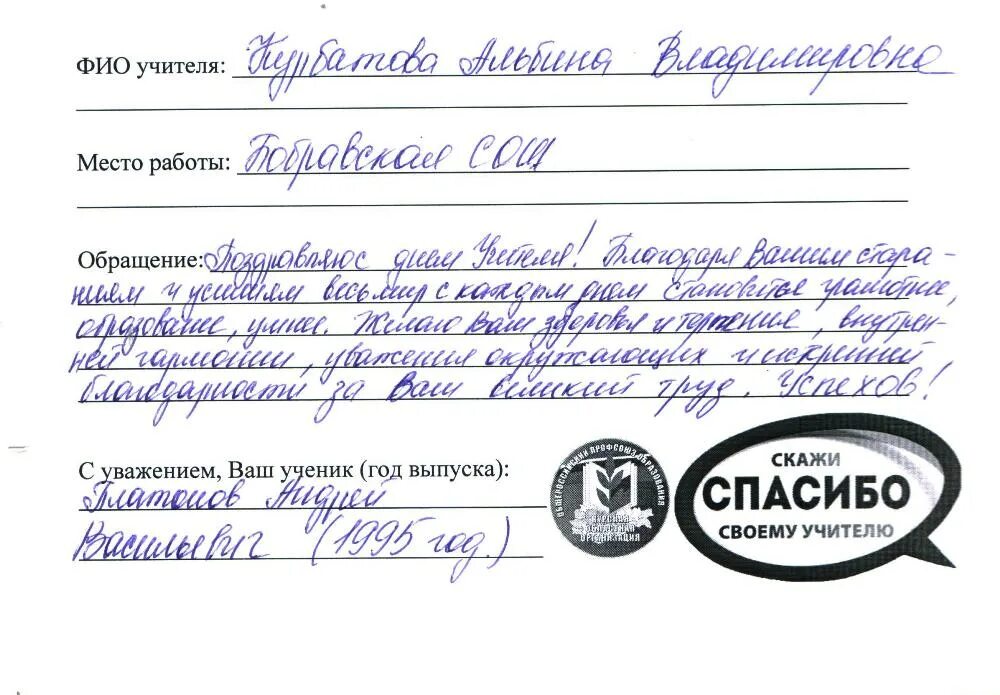 ФИО учителя: Курбатова Альбина Владимировна
Место работы: Бобравская СОШ
Обращение: Поздравляю с днем Учителя! Благодаря Вашим стара-
ниям и усилиям весь мир с каждым днем становится грамотнее,
образование, умнее. Желаю Вам здоровья и терпения, внутрен-
ней гармонии, уважения окружающих и искренней
благодарности за Ваш великий труд. Успехов!
С уважением, Ваш ученик (год выпуска):
Платонов Андрей
Васильевич (1995 год.)
ОБЩЕРОССИЙСКИЙ ПРОФСОЮЗ ОБРАЗОВАНИЯ
КУРСКАЯ
ОБЛАСТНАЯ
ОРГАНИЗАЦИЯ
СКАЖИ
СПАСИБО
СВОЕМУ УЧИТЕЛЮ